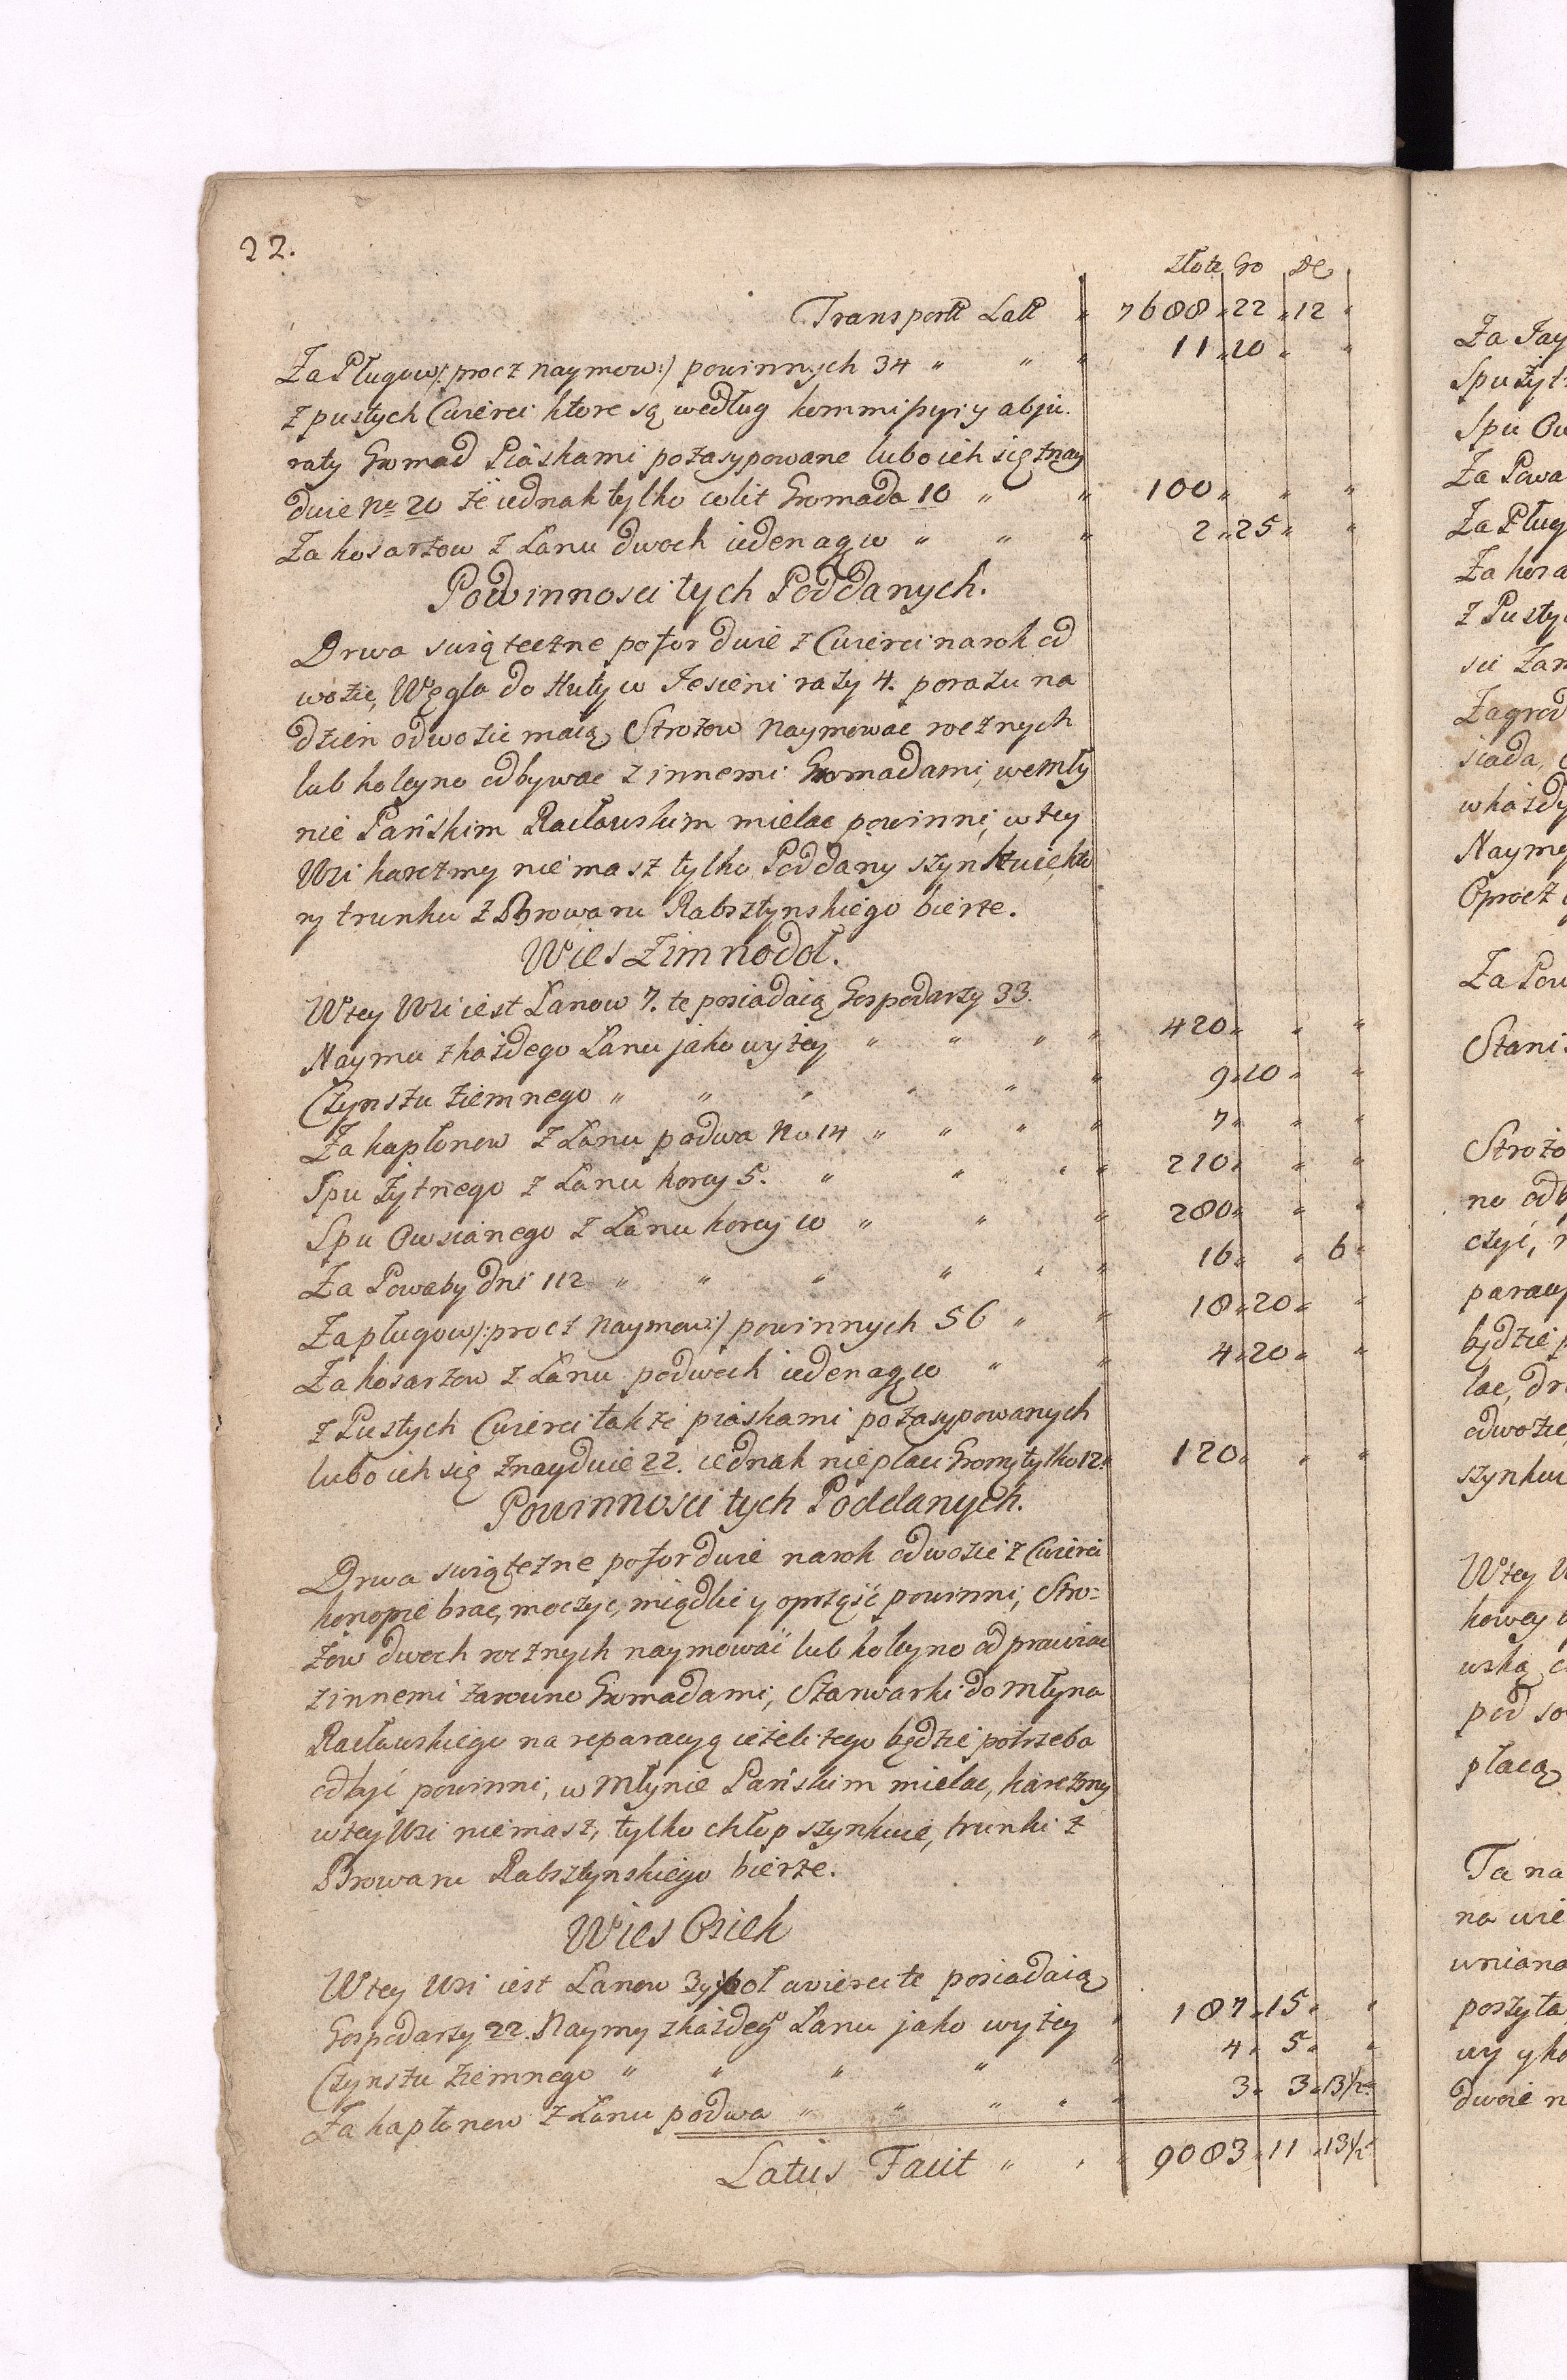 22.
Złote Gro D
Transport Lat " 7688 " 22 " 12 "
Za Pługow /: procz naymow :/ powinnych 34 " " " 11 " 10 " "
z pustych Cwierci ktore są według kommissyi y abju-
raty Gromad Piaskami pozasypowane lubo ich się znay
duie No 20 że iednak tylko Gromada 10 " " 100 " " "
Za kosarzow z Lanu dwoch iedenagw " " " 2 " 25 " "
Powinnosci tych Poddanych.
Drwa swiąteczne po for dwie z Cwierci na rok od
wozic, Węgla do Huty w Jesieni razy 4. po razu na
dzien odwozic maią, Strozow naymowac rocznych
lub koleyno odbywac z innemi Gromadami, we mły
nie Pańskim Racławskim mielac powinni, w tey
Wsi karczmy nie masz tylko Poddany szynkuie, kto
ry trunku z Browaru Rabsztynskiego bierze.
Wies Zimnodoł.
W tey Wsi iest Lanow 7. te posiadaią Gospodarzy 33.
Naymu z każdego Lanu jako wyżey " " " " 420 " " "
Czynszu ziemnego " " " " " " 9 " 10 " "
Za kapłonow z Lanu po dwa No 14 " " " " 7 " " "
Spu Żytnego z Lanu korcy 5. " " " " 210 " " "
Spu Owsianego z Lanu korcy 10 " " " 280 " " "
Za Powaby dni 112 " " " " " " 16 " " 6 "
Za pługow /: procz naymow :/ powinnych 56 " " 18 " 20 " "
Za kosarzow z Lanu po dwoch iedenagw " " 4 " 20 " "
z Pustych Cwierci także piaskami pozasypowanych
lubo ich się znayduie 22. iednak nie płaci Gromy tylko 12. 120 " " "
Powinnosci tych Poddanych.
Drwa swiąteczne po for dwie na rok odwozic z Cwierci
konopie brac, moczyc, międlic y oprząść powinni, Stro=
żow dwoch rocznych naymować lub koleyno odprawiac
z innemi zarowno Gromadami, Szarwarki do Młyna
Racławskiego na reparacyą ieżeli tego będzie potrzeba
odbyć powinni, w Młynie Pańskim mielac, karczmy
w tey Wsi nie masz, tylko chłop szynkuie, trunki z
Browaru Rabsztynskiego bierze.
Wies Osiek
W tey Wsi iest Lanow 3 y poł cwierci te posiadaią
Gospodarzy 22. Naymy z każdego Lanu jako wyżey " 187 " 15 " "
Czynszu ziemnego " " " " " 4 " 5 " "
Za kapłonow z Lanu po dwa " " " " " 3 " 3 " 13½ "
Latus Facit " " " 9083 " 11 " 13½ "
Za
Spu Żyt
Spu Ow
Za Powa
Za Pług
Za kosa
z Pusty
Zagrod
siada,
w każdy
Nayme
Oprocz
Za Pow
Strożo
no odb
czyć,
paracy
będzie
lac, dr
odwozic
szynku
W tey
kowey
pod
płacą
Ta na
na
posz
dwoie